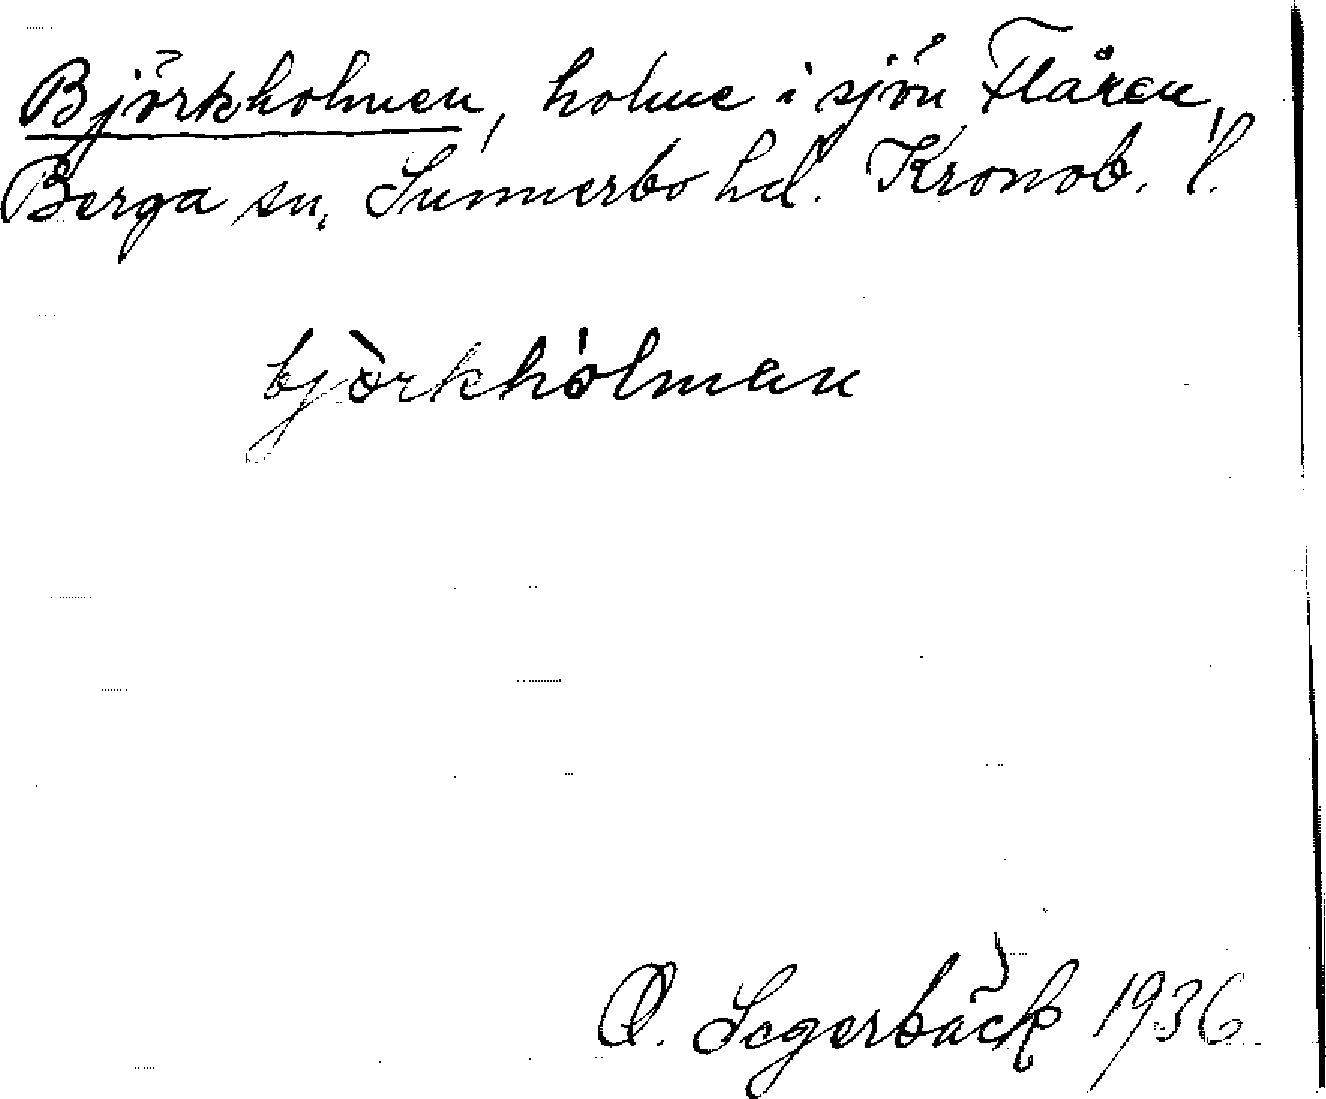 Björkholmen, holme i sjön Flåren,
Berga sn, Sunnerbo hd. Kronob. l.
bjòrkhólman
O. Segerbäck 1936.